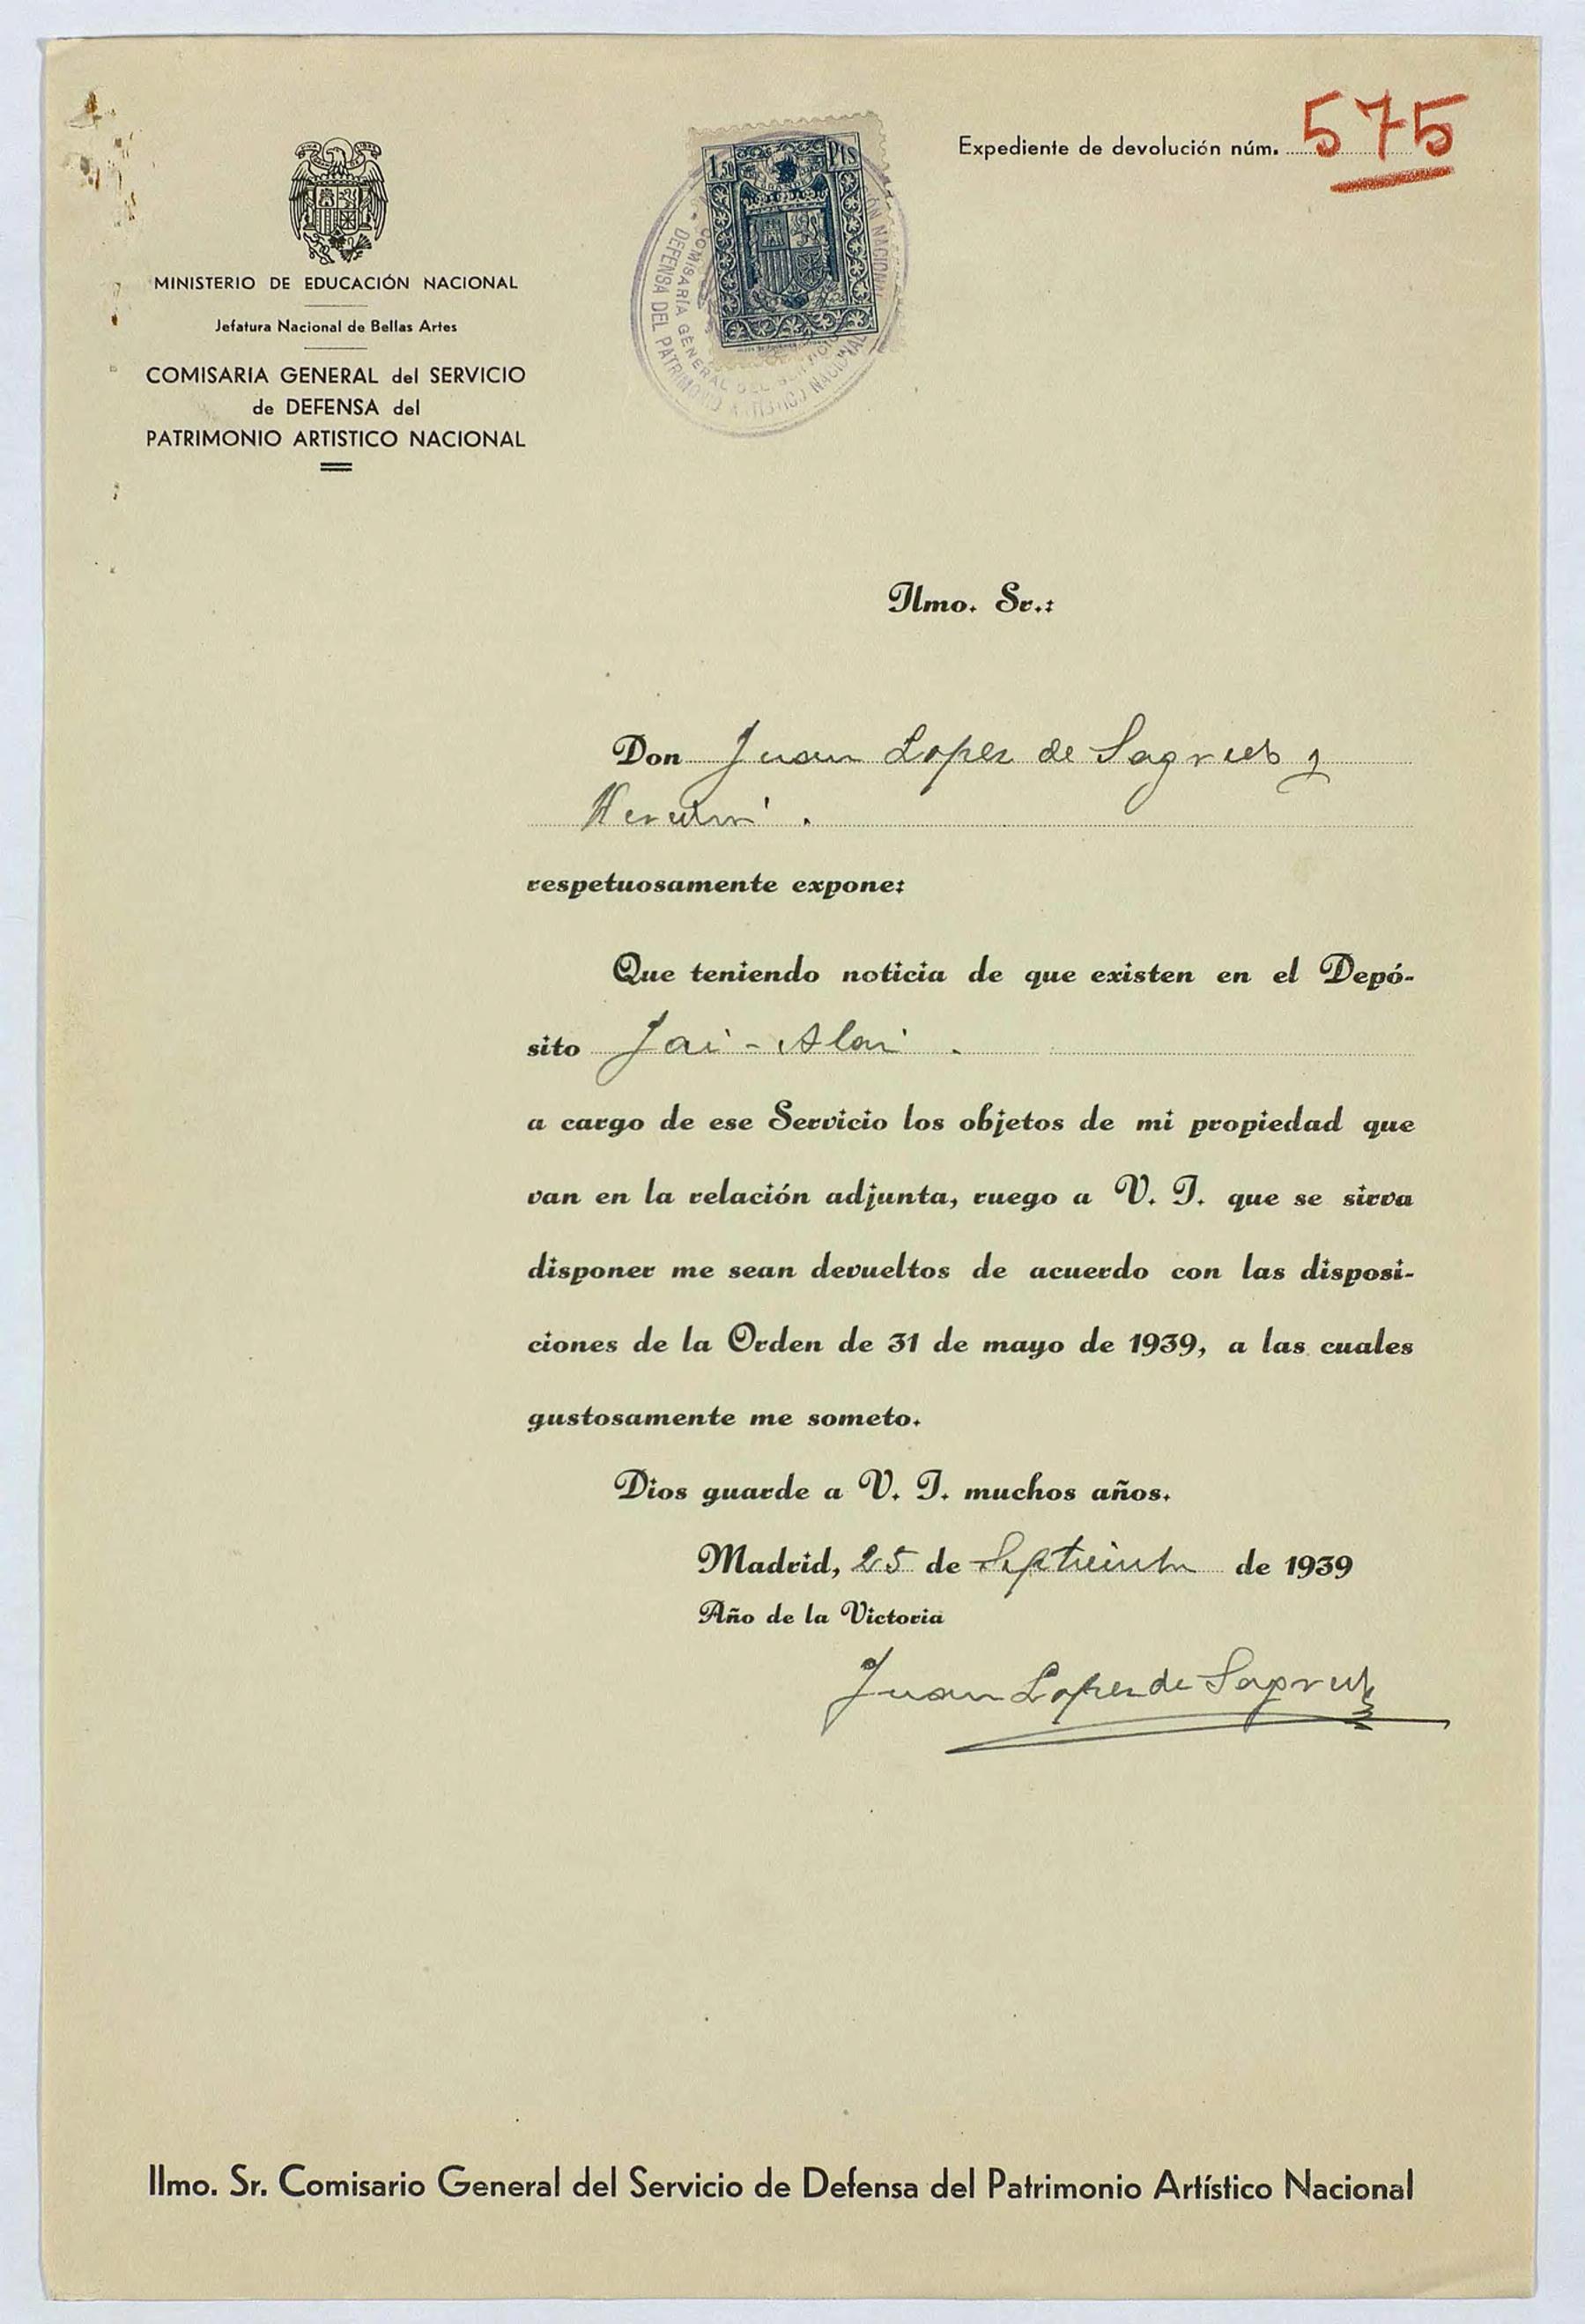 Expediente de devolución núm. 575
1'50 Pts
MINISTERIO DE EDUCACIÓN NACIONAL
Jefatura Nacional de Bellas Artes
COMISARIA GENERAL del SERVICIO
de DEFENSA del
PATRIMONIO ARTISTICO NACIONAL
COMISARÍA GENERAL DEL SERVICIO
DEFENSA DEL PATRIMONIO ARTÍSTICO NACIONAL
Ilmo. Sr.:
Don Juan Lopez de Sagredo y
respetuosamente expone:
Que teniendo noticia de que existen en el Depó-
sito Jai-Alai.
a cargo de ese Servicio los objetos de mi propiedad que
van en la relación adjunta, ruego a V. I. que se sirva
disponer me sean devueltos de acuerdo con las disposi-
ciones de la Orden de 31 de mayo de 1939, a las cuales
gustosamente me someto.
Dios guarde a V. I. muchos años.
Madrid, 25 de Septiembre de 1939
Año de la Victoria
Juan Lopez de Sagredo
Ilmo. Sr. Comisario General del Servicio de Defensa del Patrimonio Artístico Nacional